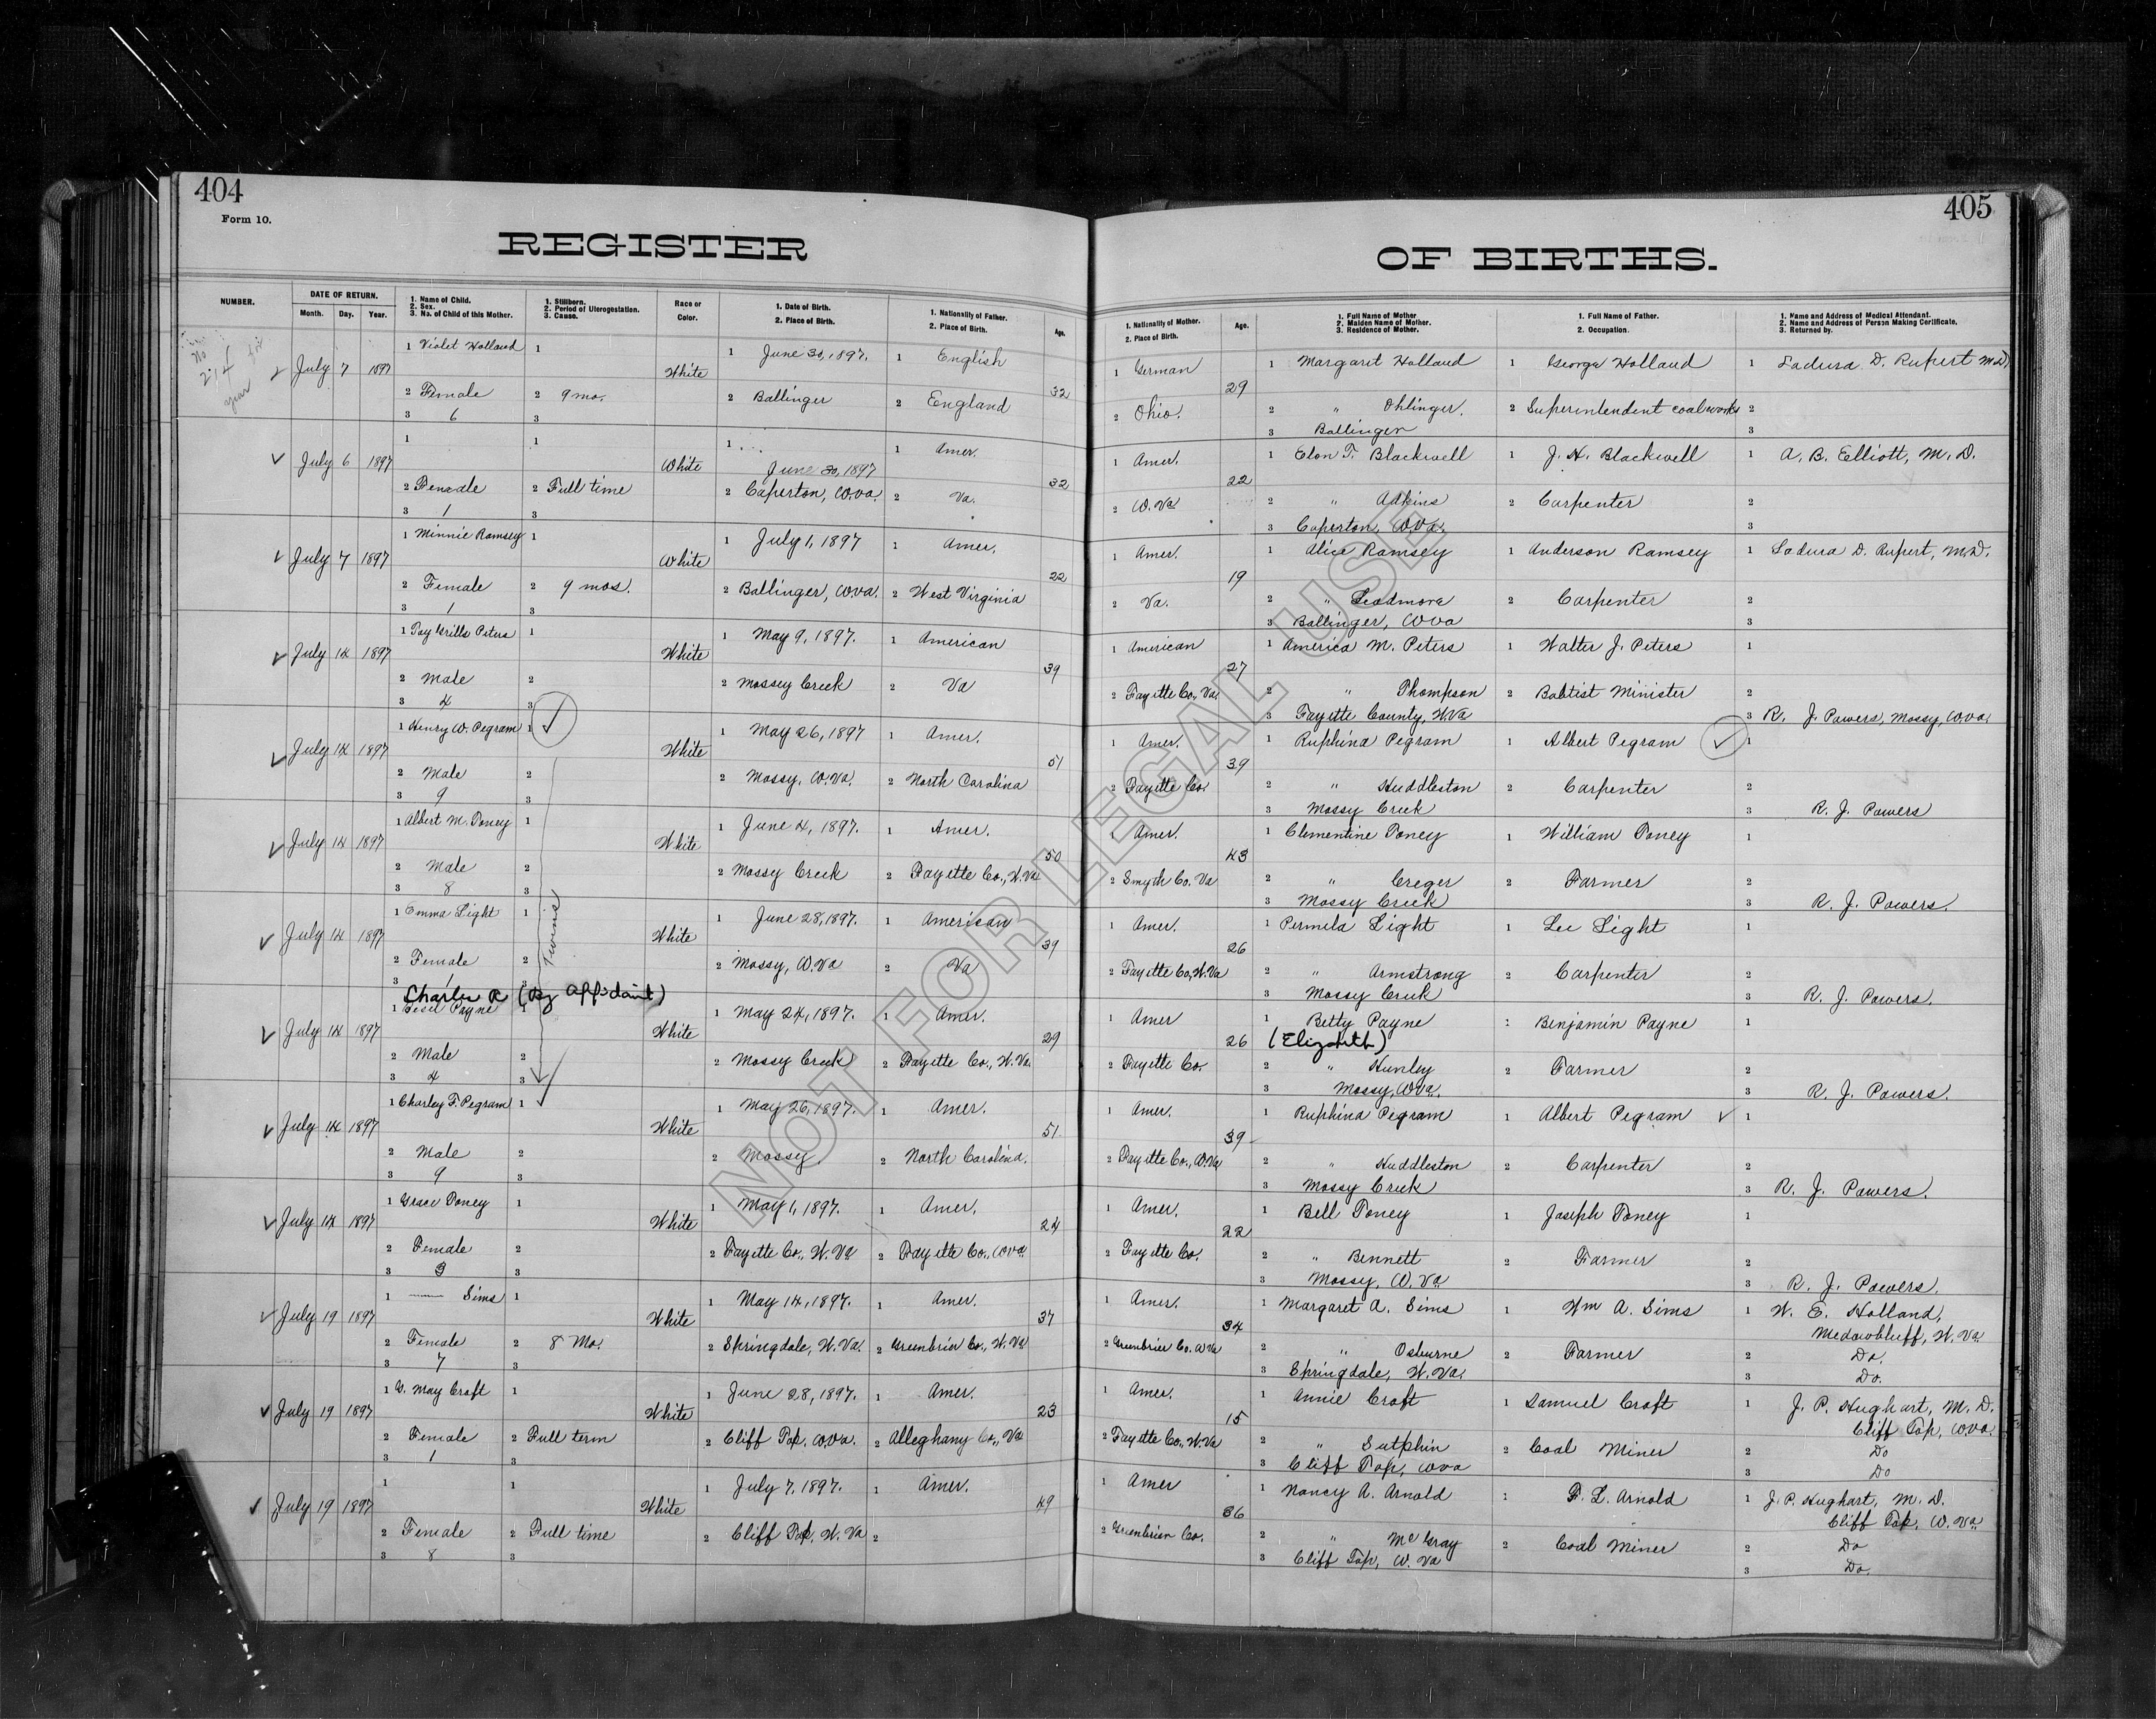 404
Form 10.
REGISTER
NUMBER.
DATE OF RETURN.
Month. Day. Year.
1. Name of Child.
2. Sex.
3. No. of Child of this Mother.
1. Stillborn.
2. Period of Uterogestation.
3. Cause.
Race or
Color.
1. Date of Birth.
2. Place of Birth.
1. Nationality of Father.
2. Place of Birth.
Age.
405
OF BIRTHS.
1. Nationality of Mother.
2. Place of Birth.
Age.
1. Full Name of Mother
2. Maiden Name of Mother.
3. Residence of Mother.
1. Full Name of Father.
2. Occupation.
1. Name and Address of Medical Attendant.
2. Name and Address of Person Making Certificate.
3. Returned by.
No
year
1 Violet Holland 1 1 June 30, 1897. 1 English 1 German 1 Margaret Holland 1 George Holland 1 Ladura D. Rupert M.D.
July 7 1897 White 32 29
2 Female 2 9 mo. 2 Ballinger 2 England 2 Ohio. 2 " Ohlinger. 2 Superintendent coal works 2
3 6 3 3 Ballinger 3
1 1 1 June 30, 1897 1 Amer. 1 Amer. 1 Elon T. Blackwell 1 J. H. Blackwell 1 A. B. Elliott, M. D.
July 6 1897 White 32 22
2 Female 2 Full time 2 Caperton, W.Va. 2 Va. 2 W. Va 2 " Adkins 2 Carpenter 2
3 1 3 3 Caperton, W.Va. 3
1 Minnie Ramsey 1 1 July 1, 1897 1 Amer. 1 Amer. 1 Alice Ramsey 1 Anderson Ramsey 1 Ladura D. Rupert, M.D.
July 7 1897 White 22 19
2 Female 2 9 mos. 2 Ballinger, W.Va. 2 West Virginia 2 Va. 2 " 2 Carpenter 2
3 1 3 3 Ballinger, W Va 3
1 Peters 1 1 May 9, 1897. 1 American 1 American 1 America M. Peters 1 Walter J. Peters 1
July 14 1897 White 39 27
2 Male 2 2 Mossey Creek 2 Va 2 Fayette Co., Va. 2 " Thompson 2 Babtist Minister 2
3 4 3 3 Fayette County, W.Va 3 R. J. Powers, Mossy, W.Va.
1 Henry W. Pegram 1 1 May 26, 1897 1 Amer. 1 Amer. 1 Ruphina Pegram 1 Albert Pegram 1
July 14 1897 White 51 39
2 Male 2 2 Mossy, W.Va. 2 North Carolina 2 Fayette Co. 2 " Huddleston 2 Carpenter 2
3 9 3 3 Mossy Creek 3 R. J. Powers
1 Albert M. Toney 1 1 June 4, 1897. 1 Amer. 1 Amer. 1 Clementine Toney 1 William Toney 1
July 14 1897 White 50 43
2 Male 2 2 Mossy Creek 2 Fayette Co., W.Va 2 Smyth Co. Va 2 " Creger 2 Farmer 2
3 8 3 3 Mossy Creek 3 R. J. Powers.
Twins
1 Emma Light 1 1 June 28, 1897. 1 American 1 Amer. 1 Permela Light 1 Lee Light 1
July 14 1897 White 39 26
2 Female 2 2 Mossy, W.Va 2 Va 2 Fayette Co, W.Va 2 " Armstrong 2 Carpenter 2
3 1 3 3 Mossy Creek 3 R. J. Powers.
Charles R (By Affidavit)
1 Cecil Payne 1 1 May 24, 1897. 1 Amer. 1 Amer 1 Betty Payne 1 Benjamin Payne 1
July 14 1897 White 29 26 (Elizabeth)
2 Male 2 2 Mossy Creek 2 Fayette Co., W.Va. 2 Fayette Co. 2 " Hunley 2 Farmer 2
3 4 3 3 Mossy, W.Va. 3 R. J. Powers.
1 Charley F. Pegram 1 1 May 26, 1897. 1 Amer. 1 Amer. 1 Ruphina Pegram 1 Albert Pegram 1
July 14 1897 White 51 39
2 Male 2 2 Mossy. 2 North Carolina. 2 Fayette Co., W.Va 2 " Huddleston 2 Carpenter 2
3 9 3 3 Mossy Creek 3 R. J. Powers.
1 Grace Toney 1 1 May 1, 1897. 1 Amer. 1 Amer. 1 Bell Toney 1 Joseph Toney 1
July 14 1897 White 24 22
2 Female 2 2 Fayette Co., W. Va 2 Fayette Co., W.Va. 2 Fayette Co. 2 " Bennett 2 Farmer 2
3 3 3 3 Mossy, W. Va 3 R. J. Powers.
1 — Sims 1 1 May 14, 1897. 1 Amer. 1 Amer. 1 Margaret A. Sims 1 Wm A. Sims 1 W. E. Holland,
July 19 1897 White 37 34 Medowbluff, W. Va
2 Female 2 8 Mo. 2 Springdale, W. Va. 2 Greenbrier Co., W. Va 2 Greenbrier Co. W Va 2 " Osburne 2 Farmer 2 Do.
3 7 3 3 Springdale, W. Va. 3 Do.
1 G. May Craft 1 1 June 28, 1897. 1 Amer. 1 Amer. 1 Annie Craft 1 Samuel Craft 1 J. P. Hughart, M. D.
July 19 1897 White 23 15 Cliff Top, W.Va.
2 Female 2 Full term 2 Cliff Top. W.Va. 2 Alleghany Co., Va 2 Fayette Co., W.Va 2 " Sutphin 2 Coal Miner 2 Do
3 1 3 3 Cliff Top, W Va 3 Do
1 1 1 July 7. 1897. 1 Amer. 1 Amer 1 Nancy A. Arnold 1 L. Arnold 1 J. P. Hughart, M. D.
July 19 1897 White 49 36 Cliff Top, W. Va
2 Female 2 Full time 2 Cliff Top, W. Va 2 2 Greenbrier Co. 2 " McGray 2 Coal Miner 2 Do
3 8 3 3 Cliff Top, W. Va 3 Do.
NOT FOR LEGAL USE